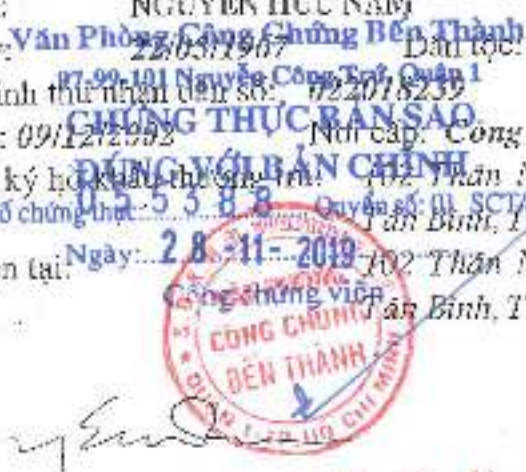 NGUYỄN HỮU NAM
Văn Phòng Công Chứng Bến Thành
22/03/1967 Dân tộc:
97-99-101 Nguyễn Công Trứ, Quận 1
số: 022018239
CHỨNG THỰC BẢN SAO
09/12/2002 Nơi cấp: Công
ĐÚNG VỚI BẢN CHÍNH
ký hộ khẩu thường trú: 102 Thân
chứng thực 055388 Quyển số: 01 SCT/
Tân Bình, T
Ngày: 28-11-2019
ện tại: 102 Thân
Công chứng viên
Tân Bình, T
CÔNG CHỨNG
BẾN THÀNH
QUẬN 1-TP HỒ CHÍ MINH